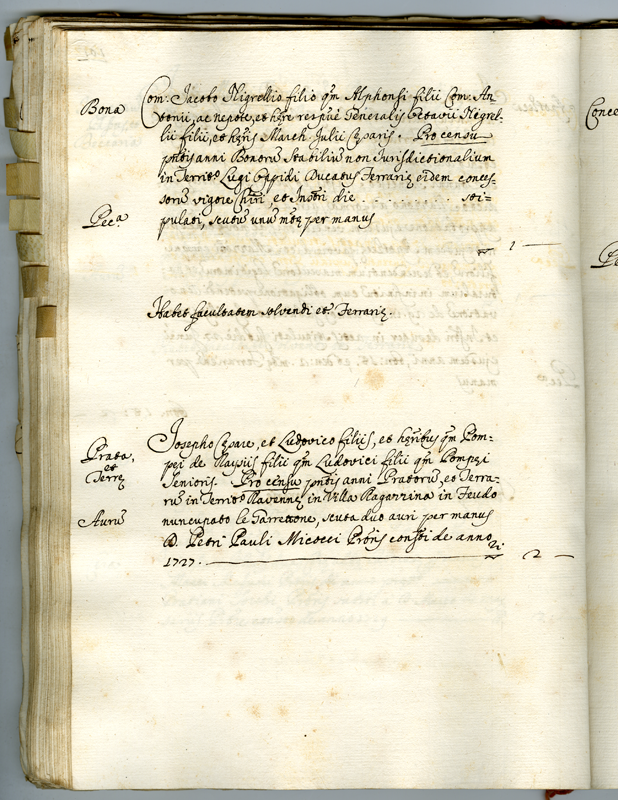 Bona
Com: Jacobo Nigrellio filio qm Alphonsi filii Com: An-
tonii, ac nepote, et hęre respiue Generalis Octavii Nigrel-
lii filii, et hęris March: Julii Cęsaris. Pro censu
pntis anni Bonorū Stabiliū non Jurisdictionalium
in Territo Lugi Ducatus Ferrarię eidem conces-
sorū vigore Chiri, et Instri die . . . . . . . sti=
Peca
pulati, scutū unū mtę per manus
1 —
Habet facultatem solvendi et Ferrarię.
Prata,
et
Terrę
Josepho Cęsare, et Ludovico filiis, et hęribus qm Pom-
pei de Raisiis filii qm Ludovici filii qm Pompei
Senioris. Pro censu pntis anni Pratorū, et Terra-
rū in Territo Ravennę in Villa Ragazzina in Feudo
Aurū
nuncupato le Garretone, scuta duo auri per manus
D. Petri Pauli Micocci Prōris constti de anno
1727. 2 —
Conce
Pe